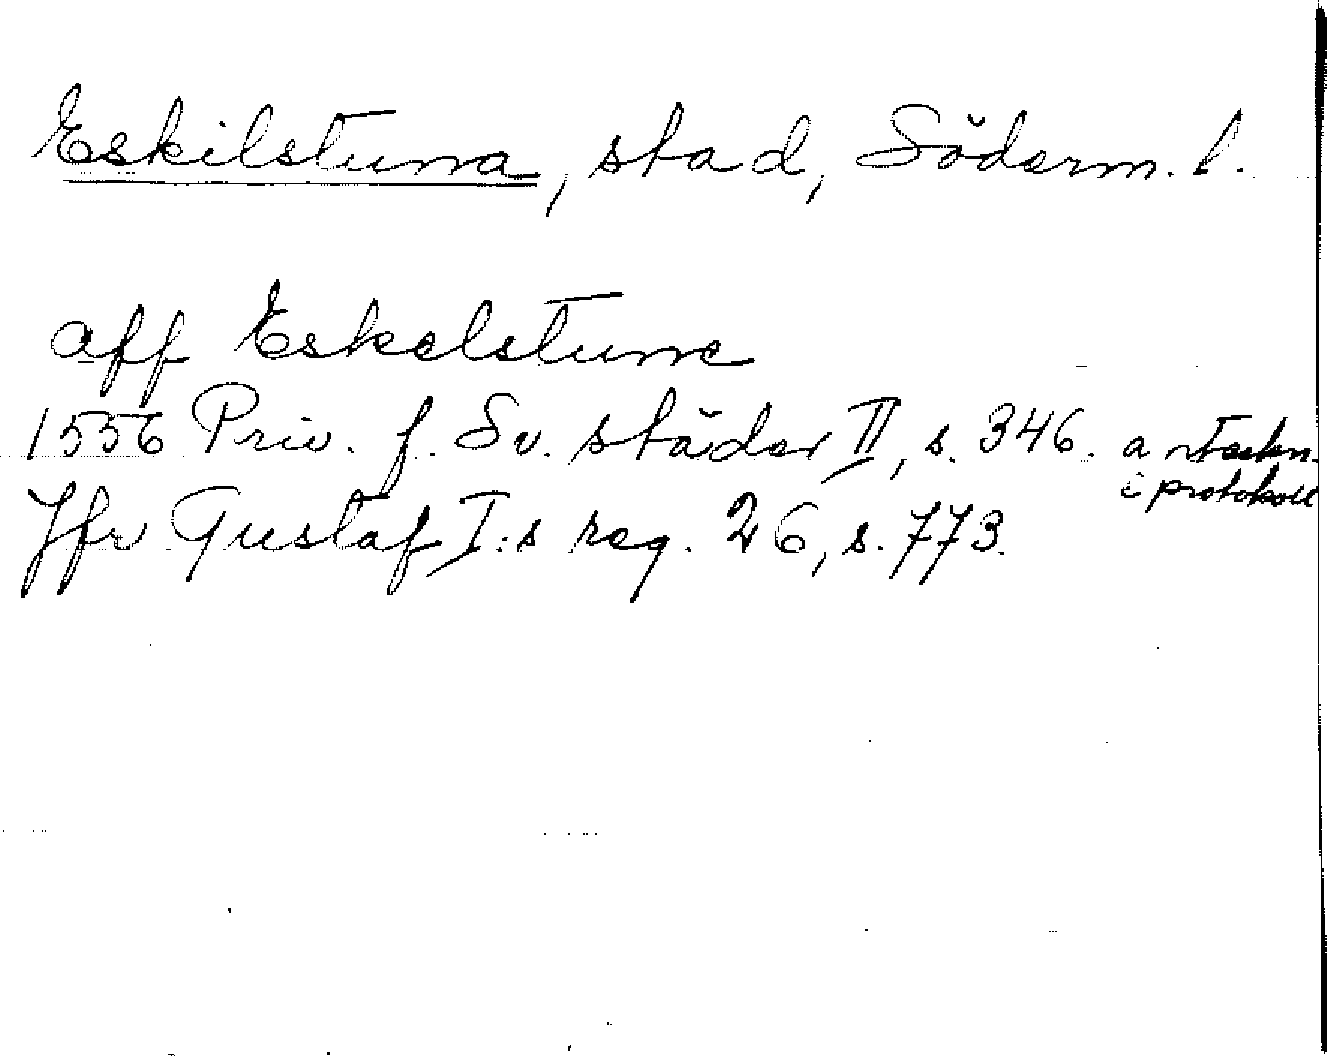 Eskilstuna, stad, Söderm. l.
aff Eskelstune
1556 Priv. f. Sv. städer II, s. 346. anteckn.
i protokoll
Jfr Gustaf I:s reg. 26, s. 773.